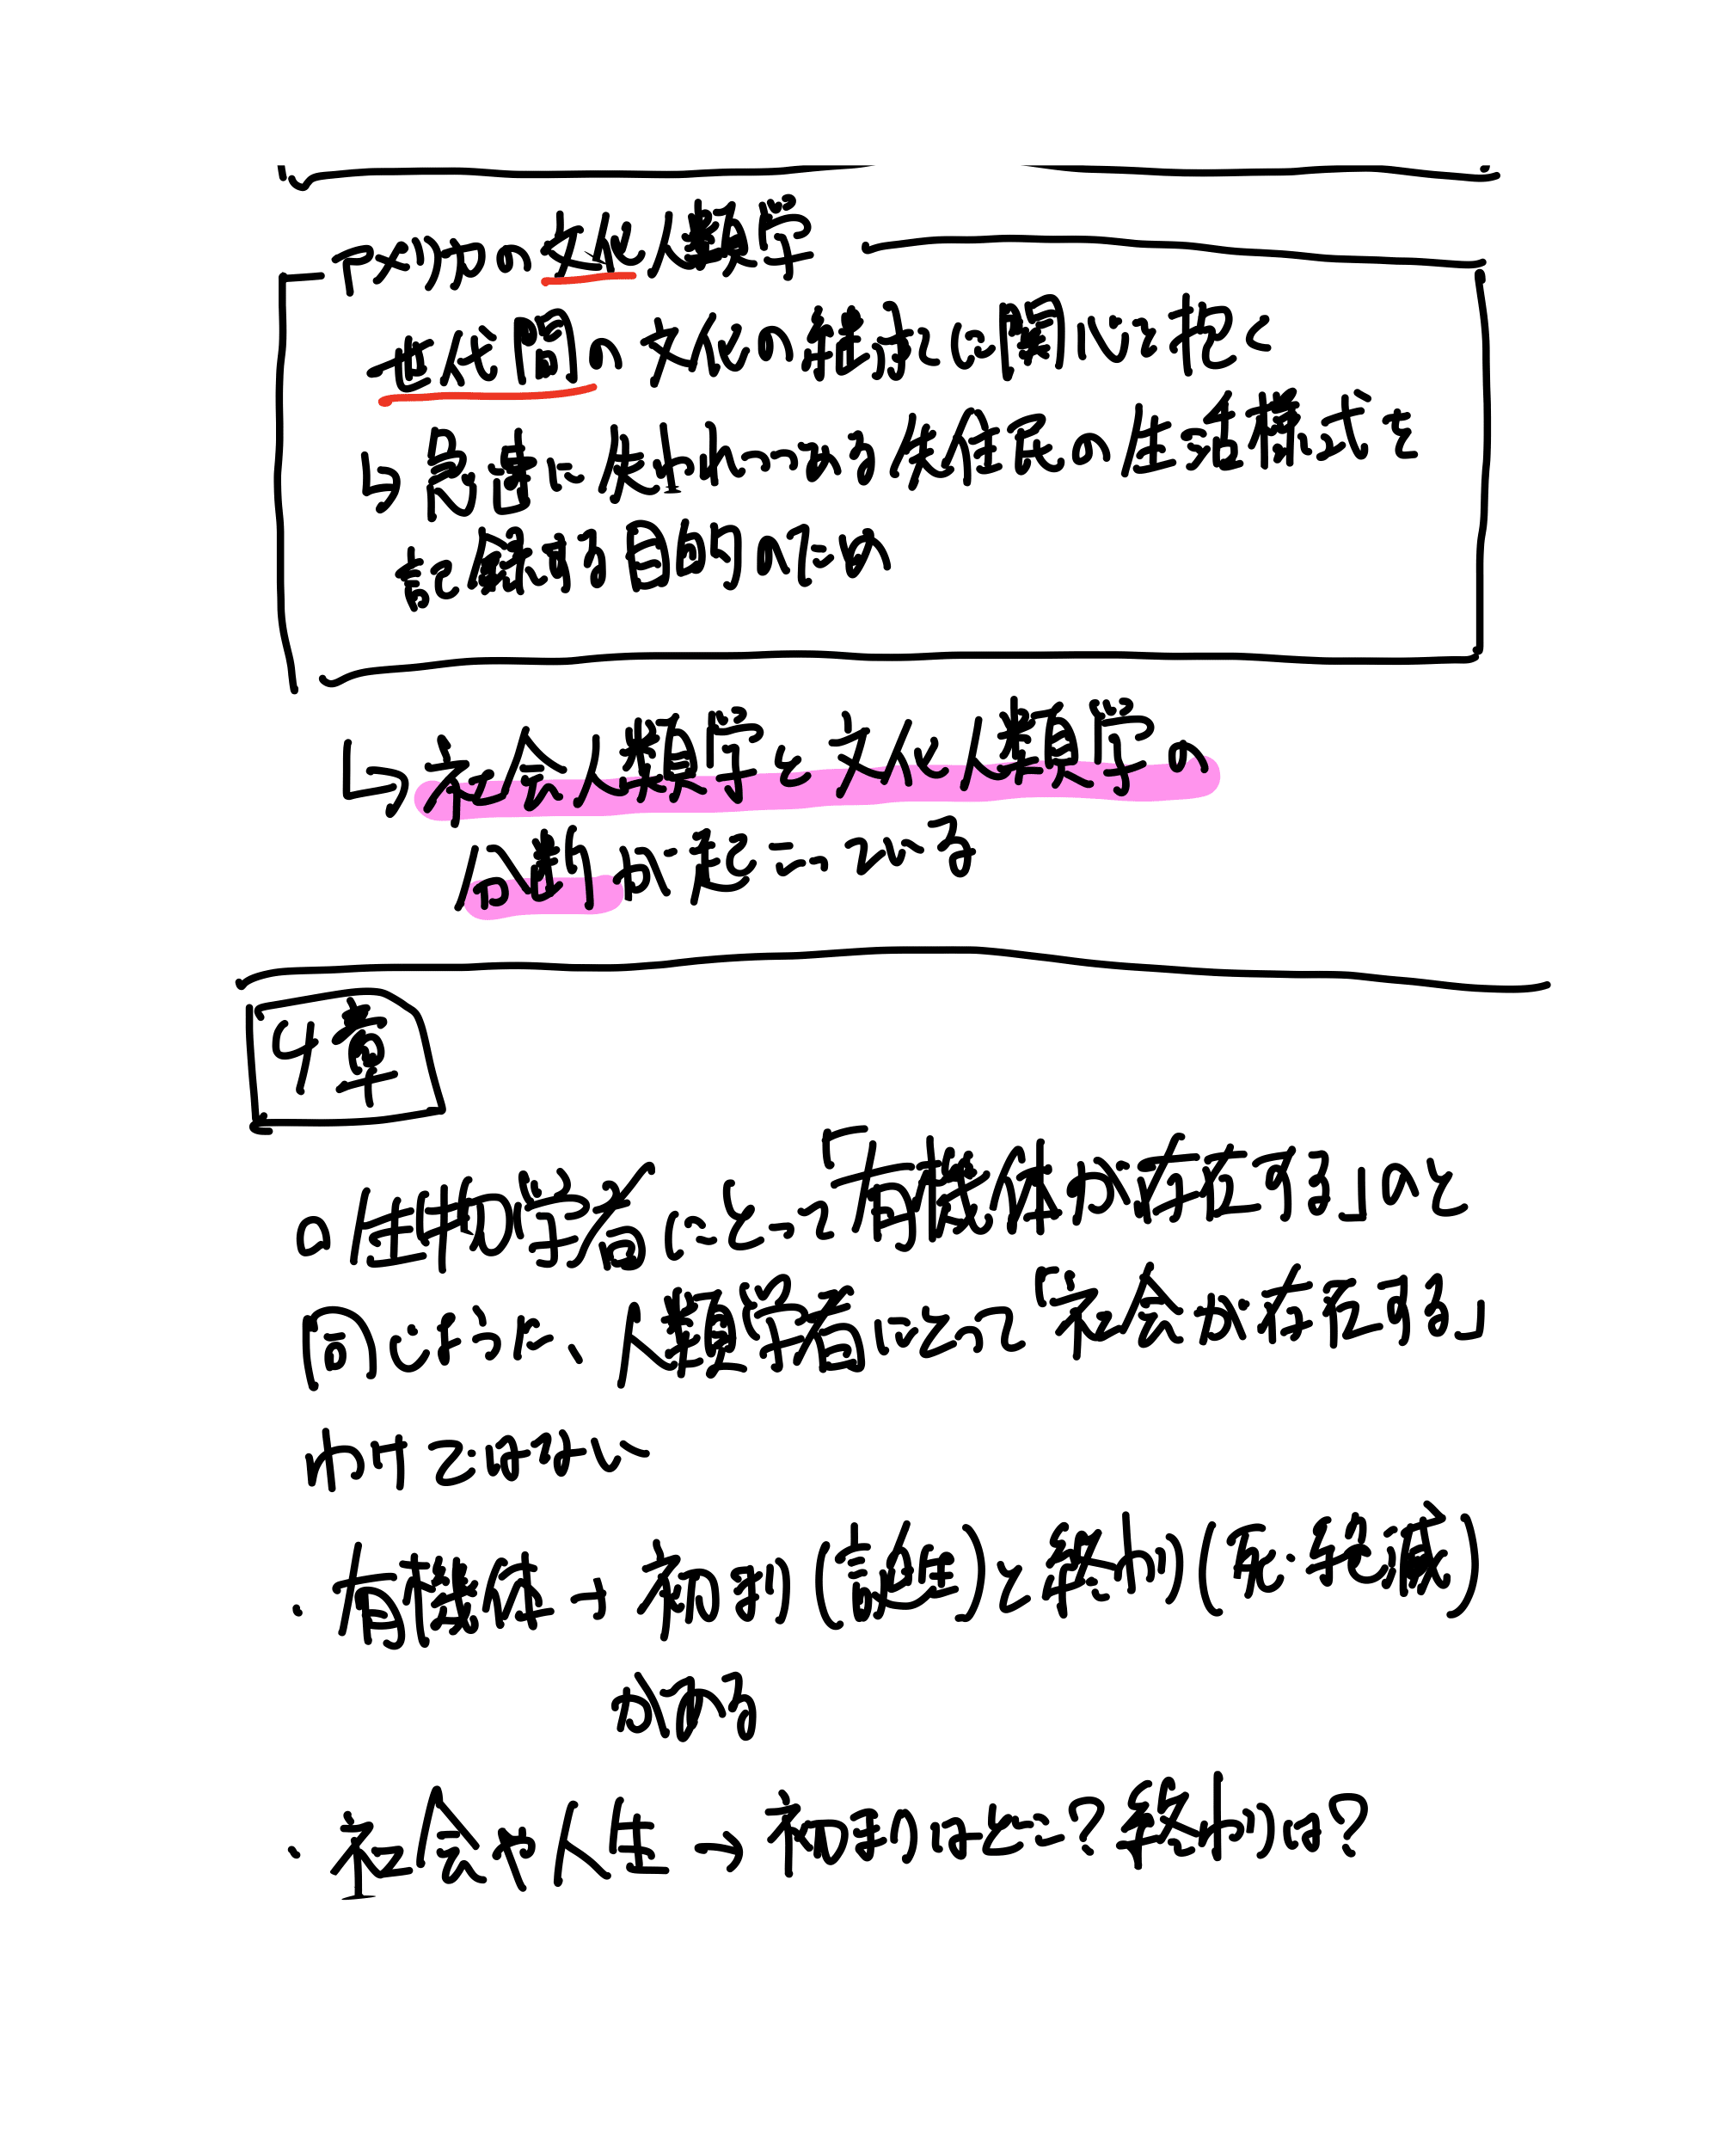 アメリカの文化人類学
世代間の文化の継承に関心を抱く
↳急速に失われつつある先住民の生活様式を
記録する目的のため
↳社会人類学と文化人類学の
分断が起こっている
4章
□生物学者にとって「有機体が存在する」のと
同じように、人類学者にとって「社会が存在する」
わけではない
・有機体→初まり(誕生)と終わり(死・絶滅)
がある
・社会や人生→初まりはどこ?終わりは?